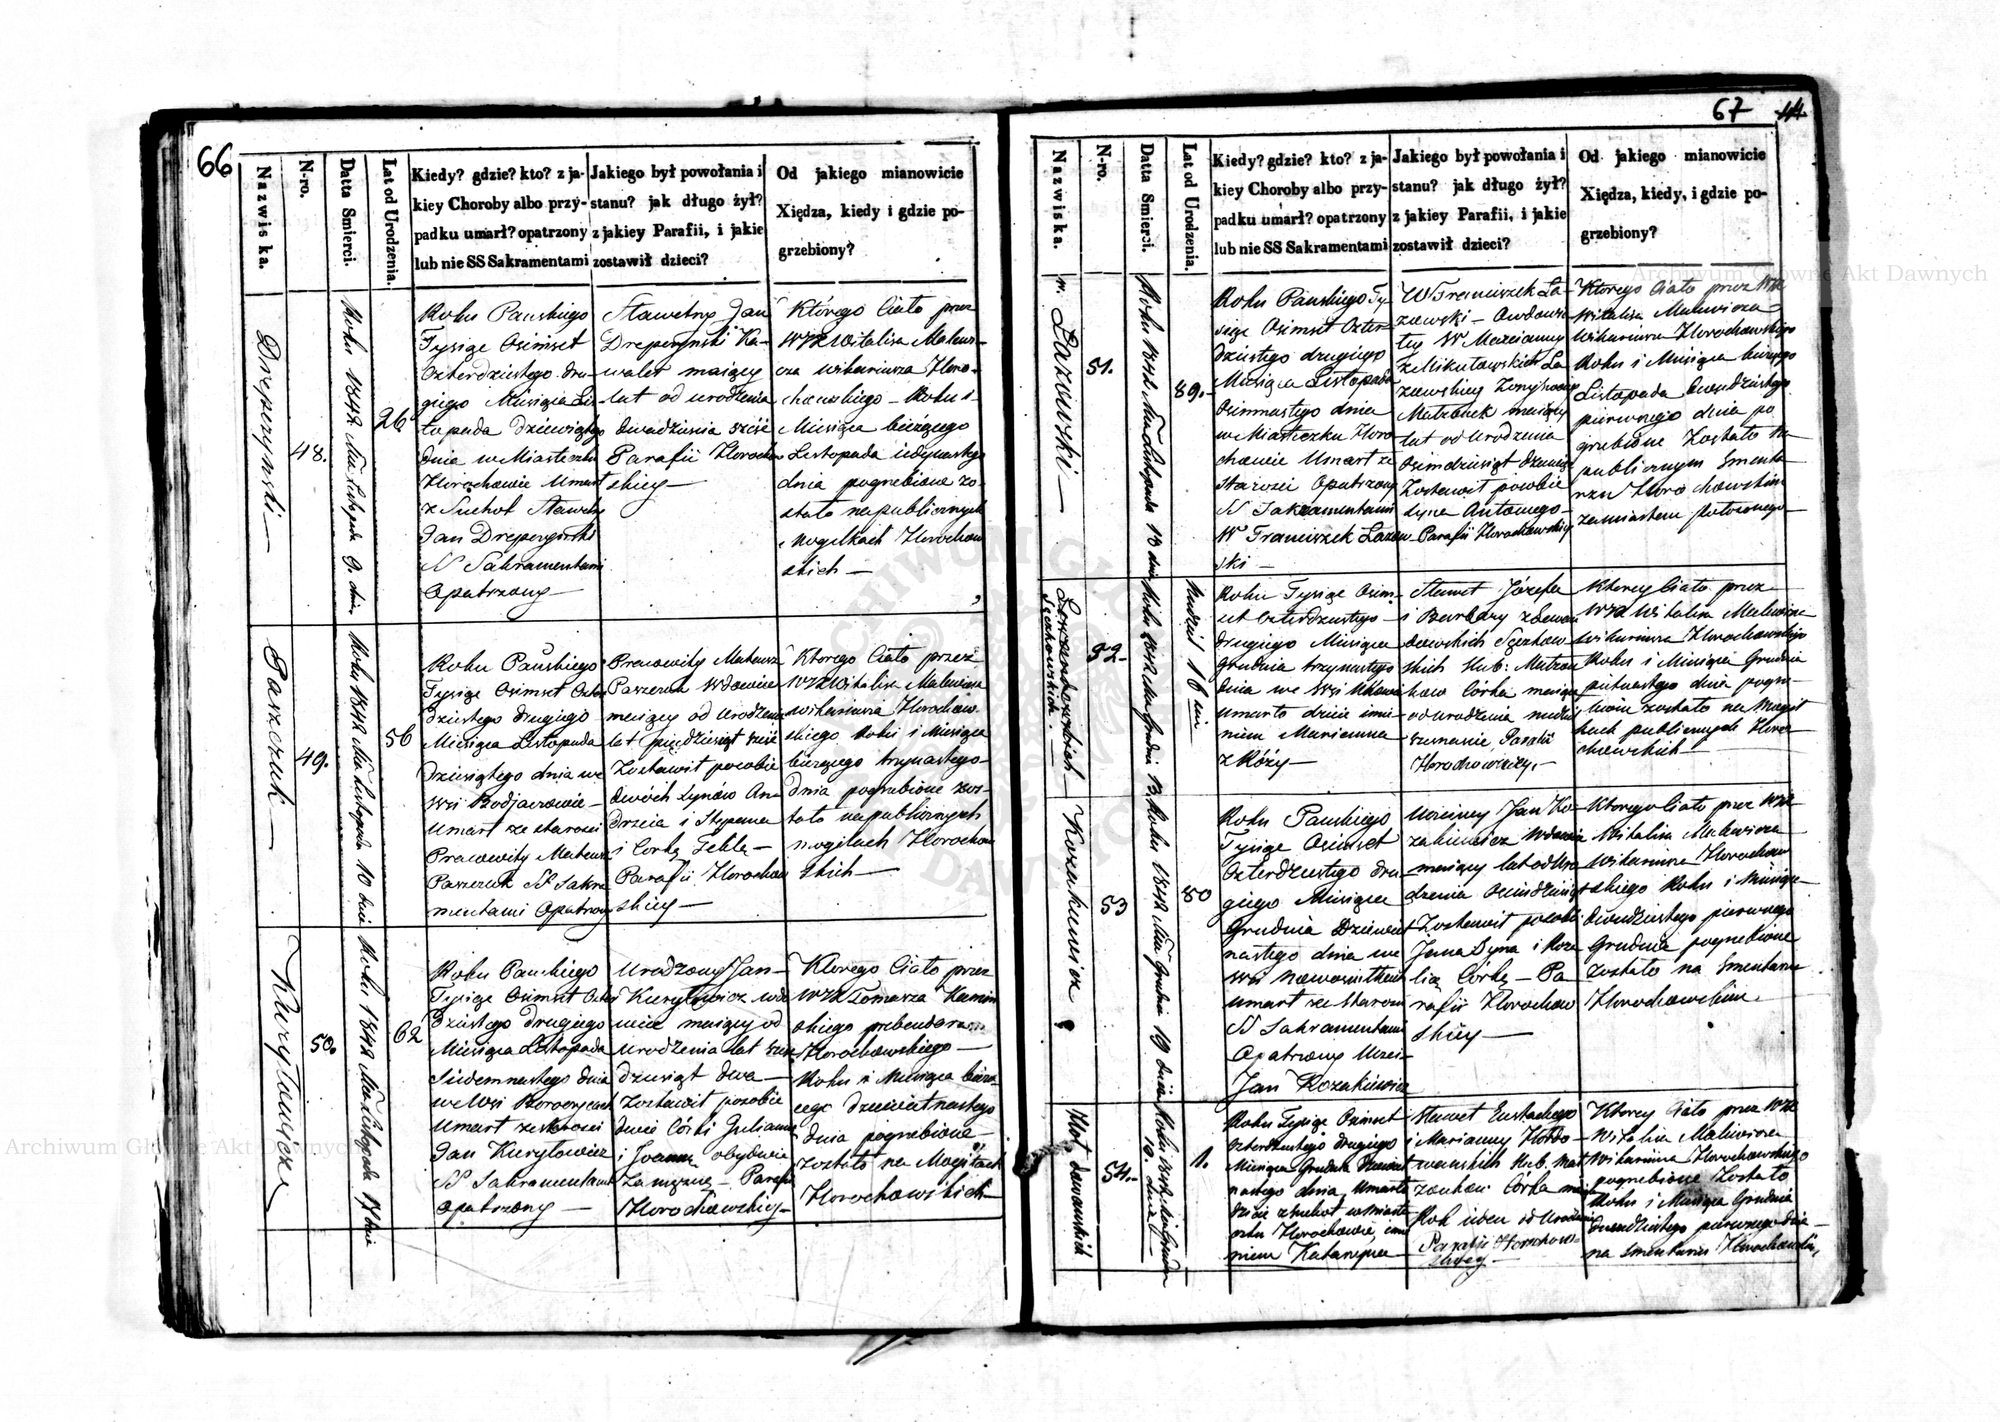 66
Nazwiska.
N-ro.
Datta Smierci.
Lat od Urodzenia.
Kiedy? gdzie? kto? z ja-
kiey Choroby albo przy-
padku umarł? opatrzony
lub nie SS Sakramentami
Jakiego był powołania i
stanu? jak długo żył?
z jakiey Parafii, i jakie
zostawił dzieci?
Od jakiego mianowicie
Xiędza, kiedy i gdzie po-
grzebiony?
48.
Roku 1842 Mca Listopada 9. dnia
26
Roku Pańskiego
Tysiąc Osimset
Czterdziestego dru-
giego Miesiąca Lis-
topada dziewiątego
dnia w Miasteczku
Horochowie Umarł
z Suchot Sławetny
Jan
SS Sakramentami
Opatrzony
Sławetny Jan
Ka-
waler maiący
lat od urodzenia
dwadzieścia sześć
Parafii Horochow
skiey
Którego Ciało przez
WX Witalisa Malewi-
cza wikariusza Horo-
chowskiego Roku i
Miesiąca bieżącego
Listopada iedynastego
dnia pogrzebione zo-
stało na publicznych
mogiłkach Horochow
skich
Paszczuk
49.
Roku 1842 Mca Listopada 10 dnia
56
Roku Pańskiego
Tysiąc Osimset Czter
dziestego drugiego
Miesiąca Listopada
dziesiątego dnia we
wsi
Umarł ze starości
Pracowity Mateusz
Paszczuk SS Sakra
mentami Opatrzony
Pracowity Mateusz
Paszczuk Wdowiec
maiący od Urodzenia
lat pięćdziesiąt sześć
Zostawił po sobie
dwóch Synów An
drzeia i Stepana
i Corkę Teklę
Parafii Horochow
skiey
Ktorego Ciało przez
WX Witalisa Malewicza
wikariusza Horochow
skiego Roku i Miesiąca
bieżącego trzynastego
dnia pogrzebione zos-
tało na publicznych
mogiłach Horochow
skich
Kuryłowicz
50.
Roku 1842 Mca Listopada 17 dnia
62
Roku Pańskiego
Tysiąc Osimset Czter
dziestego drugiego
Miesiąca Listopada
Siedemnastego dnia
we Wsi
Umarł ze starości
Jan Kuryłowicz
SS Sakramentami
opatrzony
Urodzony Jan
Kuryłowicz wdo
wiec maiący od
urodzenia lat sześć
dziesiąt dwa
Zostawił po sobie
dwie Córki Juliannę
i Joannę obydwie
Zamężne Parafii
Horochowskiey
Ktorego Ciało przez
WX Tomasza Kamiń
skiego prebendarza
Horochowskiego
Roku i Miesiąca bieżą
cego dziewiętnastego
dnia pogrzebione
zostało na Mogiłkach
Horochowskich
67
44
Nazwiska.
N-ro.
Datta Smierci.
Lat od Urodzenia.
Kiedy? gdzie? kto? z ja-
kiey Choroby albo przy-
padku umarł? opatrzony
lub nie SS Sakramentami
Jakiego był powołania i
stanu? jak długo żył?
z jakiey Parafii, i jakie
zostawił dzieci?
Od jakiego mianowicie
Xiędza, kiedy, i gdzie po-
grzebiony?
Łazowski
51.
Roku 1842 Mca Listopada 18 dnia
89.
Roku Pańskiego Ty-
siąc Osimset Czter-
dziestego drugiego
Miesiąca Listopada
Osimnastego dnia
w Miasteczku Horo
chowie Umarł ze
starości Opatrzony
SS Sakramentami
W Franciszek Łazow
ski
W Franciszek Ła-
zowski
W Maryanny
z Mikułowskich Ła-
zowskiey
Małżonek maiący
lat od Urodzenia
Osimdziesiąt dziewięć
Zostawił po sobie
syna Antoniego
Parafii Horochowskiey
Ktorego Ciało przez WX
Witalisa Malewicza
Wikariusza Horochowskiego
Roku i Miesiąca bieżącego
Listopada dwudziestego
pierwszego dnia po
grzebione Zostało na
publicznym Smenta
rzu Horochowskim
za miastem położonego
52.
Niedziel 16
Roku Tysiąc Osim-
set Czterdziestego
drugiego Miesiąca
Grudnia trzynastego
dnia we Wsi
umarło dziecie imie
niem Marianna
z Róży
Sławet Józefa
i Barbary
skich Ślub: Małżon
kow Córka maiąca
od urodzenia niedziel
szesnaście Parafii
Horochowskiey.
Ktorey Ciało przez
WX Witalisa Malewicza
wikariusza Horochowskiego
Roku i Miesiąca Grudnia
piętnastego dnia pogrze-
bione zostało na Mogił
kach publicznych Horo
chowskich
Kozakiewicz
53
Roku 1842 Mca Grudnia 19 dnia
80
Roku Pańskiego
Tysiąc Osimset
Czterdziestego dru
giego Miesiąca
Grudnia Dziewięt
nastego dnia we
Wsi
umarł ze Starości
SS Sakramentami
Opatrzony
Jan Kozakiewicz
Jan Ko-
zakiewicz Wdowiec
maiący lat od Uro
dzenia Osimdziesiąt
Zostawił po sobie
Jana Syna i Roza
lią Córkę Pa-
rafii Horochow
skiey
Ktorego Ciało przez WX
Witalisa Malewicza
Wikariusza Horochow
skiego Roku i Miesiąca
dwudziestego pierwszego
Grudnia pogrzebione
zostało na Smentarzu
Horochowskim.
54.
1.
Roku Tysiąc Osimset
Czterdziestego drugiego
Miesiąca Grudnia Dziewięt
nastego dnia, Umarło
dziecie z suchot w Miaste
czku Horochowie, imie
niem Katarzyna
Sławet Eustachego
i Marianny Hołdo-
wańskich Ślub. Mał
żonkow Córka maiąca
Rok ieden od Urodzenia
Parafii Horochow-
skiey
Ktorey Ciało przez WX
Witalisa Malewicza
Wikariusza Horochowskiego
pogrzebione Zostało
Roku i Miesiąca Grudnia
dwudziestego pierwszego dnia
na Smentarzu Horochowskim,
Archiwum Główne Akt Dawnych
Archiwum Główne Akt Dawnych